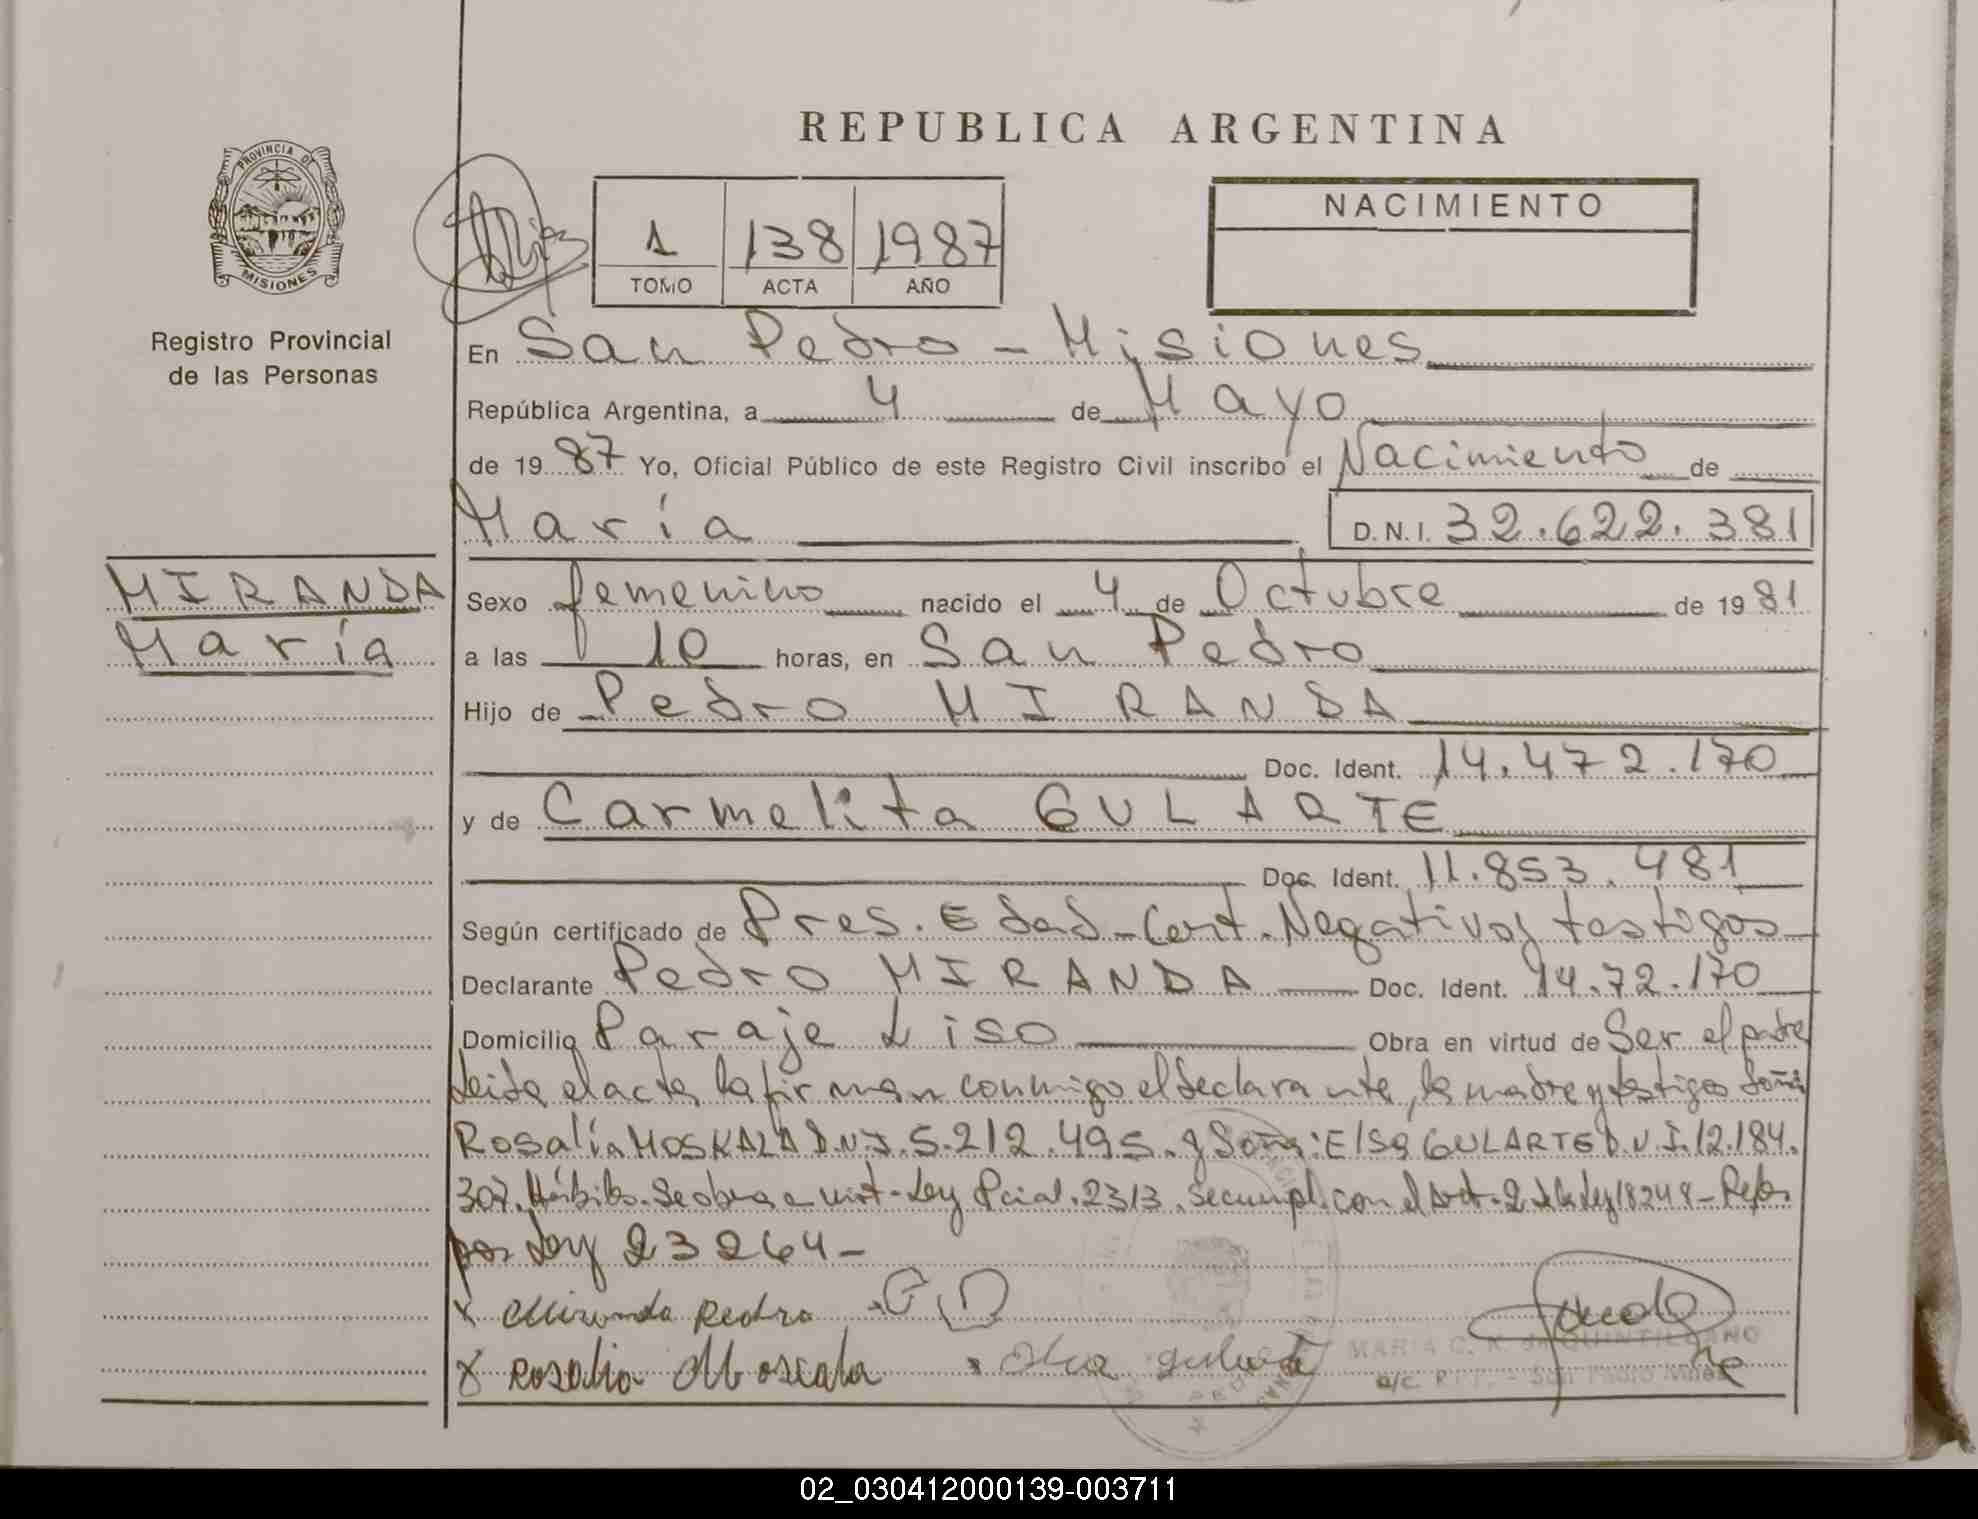 REPUBLICA ARGENTINA
PROVINCIA DE
MISIONES
Registro Provincial
de las Personas
1 138 1987
TOMO ACTA AÑO
NACIMIENTO
En San Pedro - Misiones
República Argentina, a 4 de Mayo
de 1987 Yo, Oficial Público de este Registro Civil inscribo el Nacimiento de
María D.N.I. 32.622.381
MIRANDA
María
Sexo femenino nacido el 4 de Octubre de 1981
a las 10 horas, en San Pedro
Hijo de Pedro MIRANDA
Doc. Ident. 14.472.170
y de Carmelita GULARTE
Doc. Ident. 11.853.481
Según certificado de Pres. Edad - Cert. Negativo y testigos
Declarante Pedro MIRANDA Doc. Ident. 14.72.170
Domicilio Paraje Liso Obra en virtud de Ser el padre
Leida el acta la firman conmigo el declarante, la madre y testigos Doña
Rosalía MOSKALA D.N.I. 5.212.495. y Doña: Elsa GULARTE D.N.I. 12.184.
307. Hábiles. Se obra e virt. Ley Pcial. 2313. Se cumpl. con el Art. 2 de la Ley 18248 - Refor.
por Ley 23264 -
x Miranda Pedro
x Rosalia Moscala
MARIA C. R. QUINTILIANO
a/c. R.P.P. - San Pedro Mnes.
02_030412000139-003711